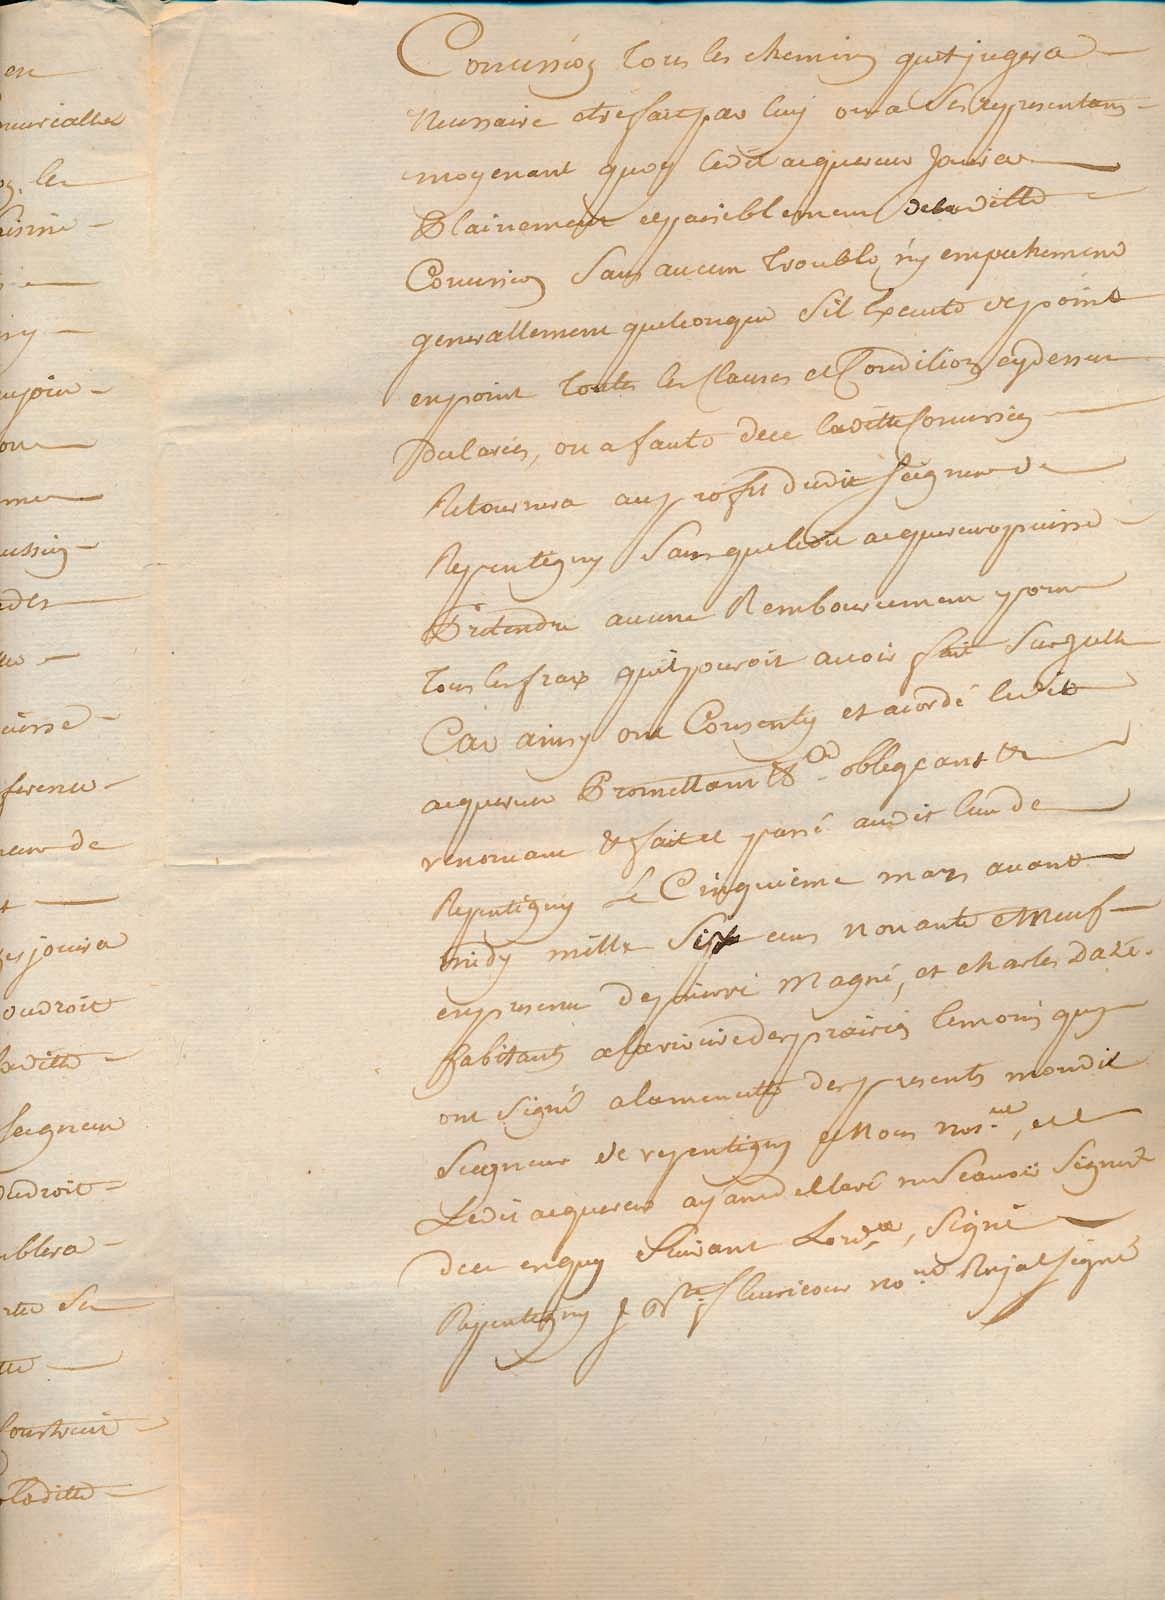 en
gneurialles
les
aisine

iny
conjoin
ou
mme
aussin
des

uisse
ference
neur de

es jouira
ou droit
laditte
seigneur
dudroit
ublera
Concession tous les chemins quil jugera
Necessaire estre fait par luy ou a Ses representans
moyenant quoy ledit acquereur Jouira
Plainement et paisiblement de laditte
Concession Sans aucun trouble ny empechement
generallement quelconque Sil Execute de point
en point toutes les Clauses et Condition cy dessus
declarées, ou a faute de ce laditte Concession
Retournera au profit dudit Seigneur de
Repentigny Sans que ledit acquereur puisse
Pretendre aucune Remboursement pour
tous les fraix quil pouroit avoir fait Sur Icelle
Car ainsy ont Consenty et acordé ledit
acquereur Promettant &ca obligeant &
renonceant & fait et passé audit lieu de
Repentigny Le Cinquième mars avant
midy mille Six cens Nonante et Neuf
en presence de pierre Magné, et charles Dazé
habitants a la riviere des prairies temoins quy
ont Signé a la menutte des presents mondit
Seigneur de repentigny et Nous nore, et
Ledit acquereur ayant declaré ne Scavoir Signer
de ce enquy Suivant Lordce, Signé
Repentigny J Bte fleuricour nore Royal Signé
rtie Sen
tte
Construit
Laditte